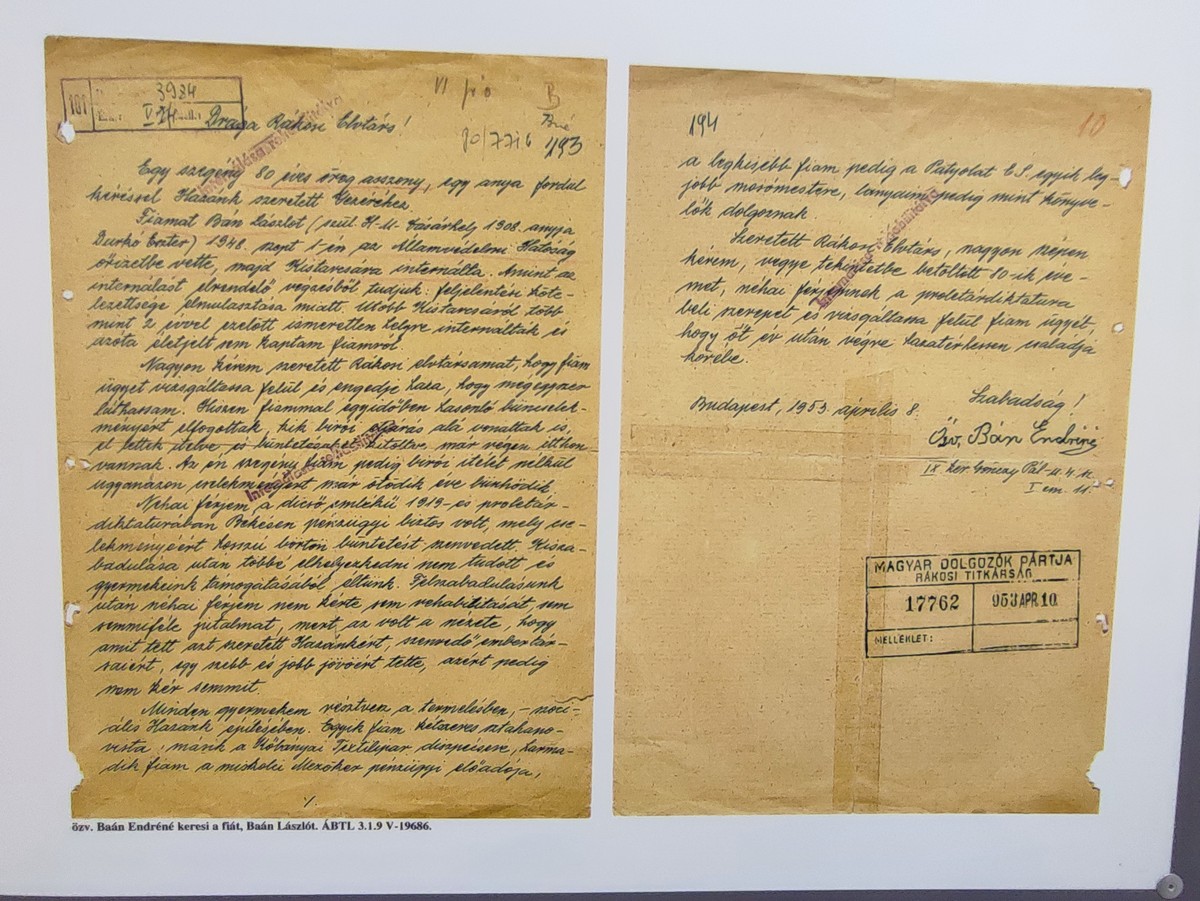 101
3984
VI
B
193
Drága Rákosi Elvtárs!
Egy szegény 80 éves öreg asszony, egy anya fordul
kéréssel Hazánk szeretett Vezéréhez
Fiamat Bán Lászlót (szül. H-M-Vásárhely 1908. anyja
Durkó Eszter) 1948. szept 1-én az Államvédelmi Hatóság
őrizetbe vette, majd Kistarcsára internálta. Amint az
internálást elrendelő végzésből tudjuk: feljelentési köte-
lezettsége elmulasztása miatt. Utóbb Kistarcsáról több
mint 2 évvel ezelőtt ismeretlen helyre internálták és
azóta életjelt sem kaptam fiamról.
Nagyon kérem szeretett Rákosi elvtársamat, hogy fiam
ügyét vizsgáltassa felül és engedje haza, hogy mégegyszer
láthassam. Hiszen fiammal egyidőben hasonló büncselek-
ményért elfogottak, kik birói eljárás alá vonattak is,
el lettek itélve, és büntetésüket kitöltve, már régen itthon
vannak. Az én szegény fiam pedig birói itélet nélkül
ugyanazon cselekményért már ötödik éve bünhődik
Néhai férjem, a dicső emlékü 1919-es proletár-
diktaturában Békésen pénzügyi biztos volt, mely cse-
lekményéért hosszú börtön büntetést szenvedett. Kisza-
badulása után többé elhelyezkedni nem tudott és
gyermekeink támogatásából éltünk. Felszabadulásunk
után néhai férjem nem kérte sem rehabilitását, sem
semmiféle jutalmat, mert az volt a nézete, hogy
amit tett azt szeretett Hazánkért, szenvedő embertár-
saiért, egy szebb és jobb jövőért tette, azért pedig
nem kér semmit.
Minden gyermekem résztvesz a termelésben, – szoci-
ális Hazánk építésében. Egyik fiam kétszeres sztahano-
vista, másik a Kőbányai Textilipar diszpécsere, harma-
dik fiam a miskolci Mezőker pénzügyi előadója,
./.
194
10
a legkisebb fiam pedig a Patyolat ES egyik leg-
jobb mosómestere, lanyaim pedig mint könyve-
lők dolgoznak.
Szeretett Rákosi Elvtárs, nagyon szépen
kérem, vegye tekintetbe betöltött 80-ik éve-
met, néhai férjemnek a proletárdiktatura
beli szerepét és vizsgáltassa felül fiam ügyét,
hogy öt év után végre hazatérhessen családja
körébe.
Szabadság!
Budapest, 1953. április 8.
Özv. Bán Endréné
IX. ker. Gönczy Pál-u.
I em. 11.
MAGYAR DOLGOZÓK PÁRTJA
RÁKOSI TITKÁRSÁG
17762
953 APR 10.
MELLÉKLET:
özv. Baán Endréné keresi a fiát, Baán Lászlót. ÁBTL 3.1.9 V-19686.